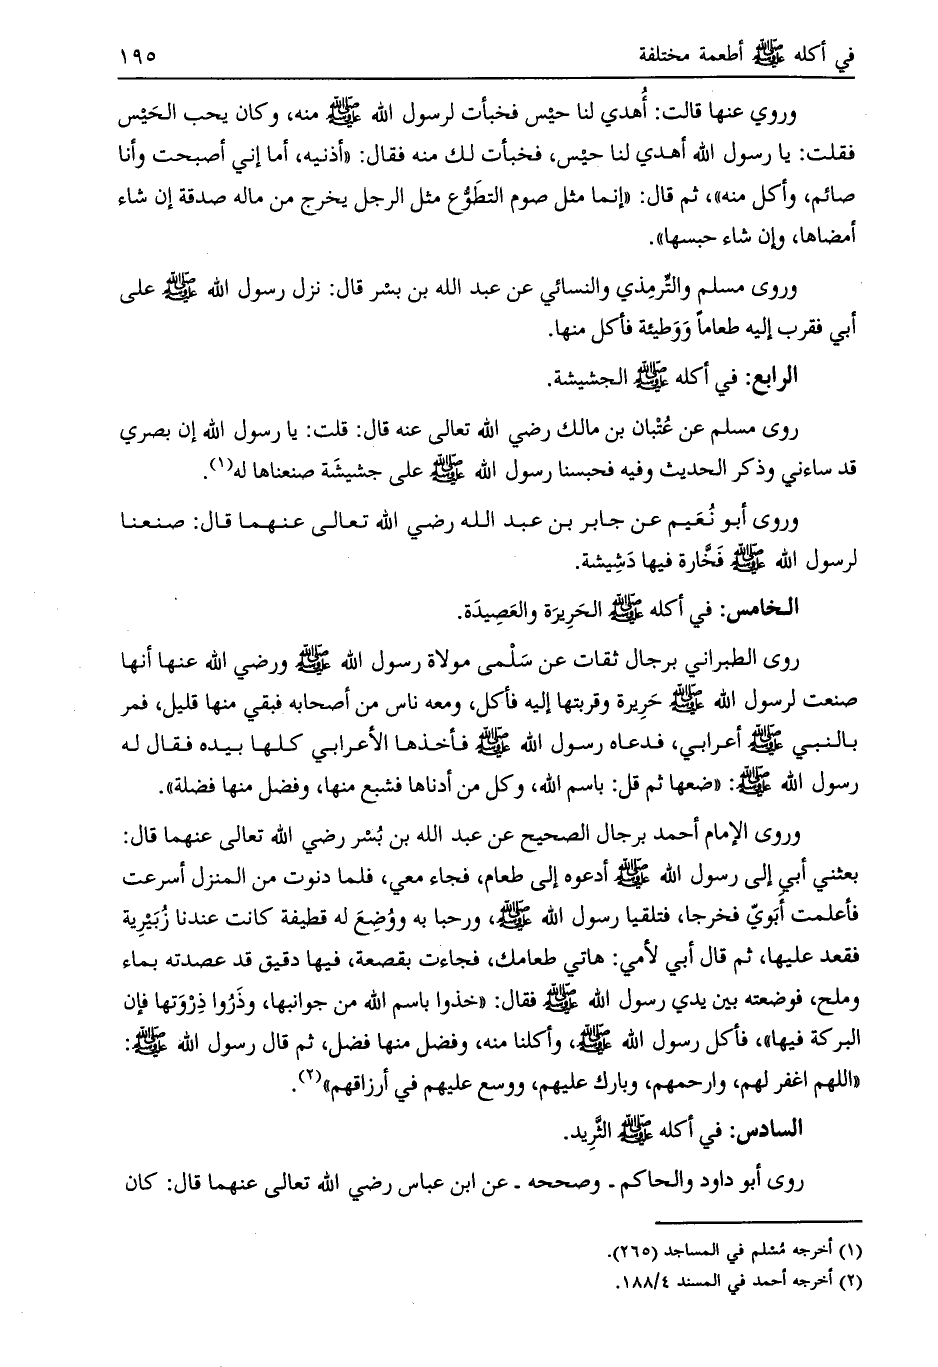 في أكله ﷺ أطعمة مختلفة ١٩٥
وروي عنها قالت: أُهدي لنا حيْس فخبأت لرسول الله ﷺ منه، وكان يحب الحَيْس
فقلت: يا رسول الله أهدي لنا حيْس، فخبأت لك منه فقال: «أذنيه، أما إني أصبحت وأنا
صائم، وأكل منه»، ثم قال: «إنما مثل صوم التطَوُّع مثل الرجل يخرج من ماله صدقة إن شاء
أمضاها، وإن شاء حبسها».
وروى مسلم والتِّرمِذي والنسائي عن عبد الله بن بسْر قال: نزل رسول الله ﷺ على
أبي فقرب إليه طعاماً وَوَطيئة فأكل منها.
الرابع: في أكله ﷺ الجشيشة.
روى مسلم عن عُتْبان بن مالك رضي الله تعالى عنه قال: قلت: يا رسول الله إن بصري
قد ساءني وذكر الحديث وفيه فحبسنا رسول الله ﷺ على جشيشَة صنعناها له(١).
وروى أبو نُعَيم عن جابر بن عبد الله رضي الله تعالى عنهما قال: صنعنا
لرسول الله ﷺ فَخَّارة فيها دَشِيشة.
الخامس: في أكله ﷺ الحَرِيرَة والعَصِيدَة.
روى الطبراني برجال ثقات عن سَلْمى مولاة رسول الله ﷺ ورضي الله عنها أنها
صنعت لرسول الله ﷺ حَرِيرة وقربتها إليه فأكل، ومعه ناس من أصحابه فبقي منها قليل، فمر
بالنبي ﷺ أعرابي، فدعاه رسول الله ﷺ فأخذها الأعرابي كلها بيده فقال له
رسول الله ﷺ: «ضعها ثم قل: باسم الله، وكل من أدناها فشبع منها، وفضل منها فضلة».
وروى الإمام أحمد برجال الصحيح عن عبد الله بن بُسْر رضي الله تعالى عنهما قال:
بعثني أبي إلى رسول الله ﷺ أدعوه إلى طعام، فجاء معي، فلما دنوت من المنزل أسرعت
فأعلمت أَبَويّ فخرجا، فتلقيا رسول الله ﷺ، ورحبا به ووُضِعَ له قطيفة كانت عندنا زُبَيْرِية
فقعد عليها، ثم قال أبي لأمي: هاتي طعامك، فجاءت بقصعة، فيها دقيق قد عصدته بماء
وملح، فوضعته بين يدي رسول الله ﷺ فقال: «خذوا باسم الله من جوانبها، وذَرُوا ذِرْوَتها فإن
البركة فيها»، فأكل رسول الله ﷺ، وأكلنا منه، وفضل منها فضل، ثم قال رسول الله ﷺ:
«اللهم اغفر لهم، وارحمهم، وبارك عليهم، ووسع عليهم في أرزاقهم»(٢).
السادس: في أكله ﷺ الثَّرِيد.
روى أبو داود والحاكم ـ وصححه ـ عن ابن عباس رضي الله تعالى عنهما قال: كان
(١) أخرجه مُسْلم في المساجد (٢٦٥).
(٢) أخرجه أحمد في المسند ١٨٨/٤.